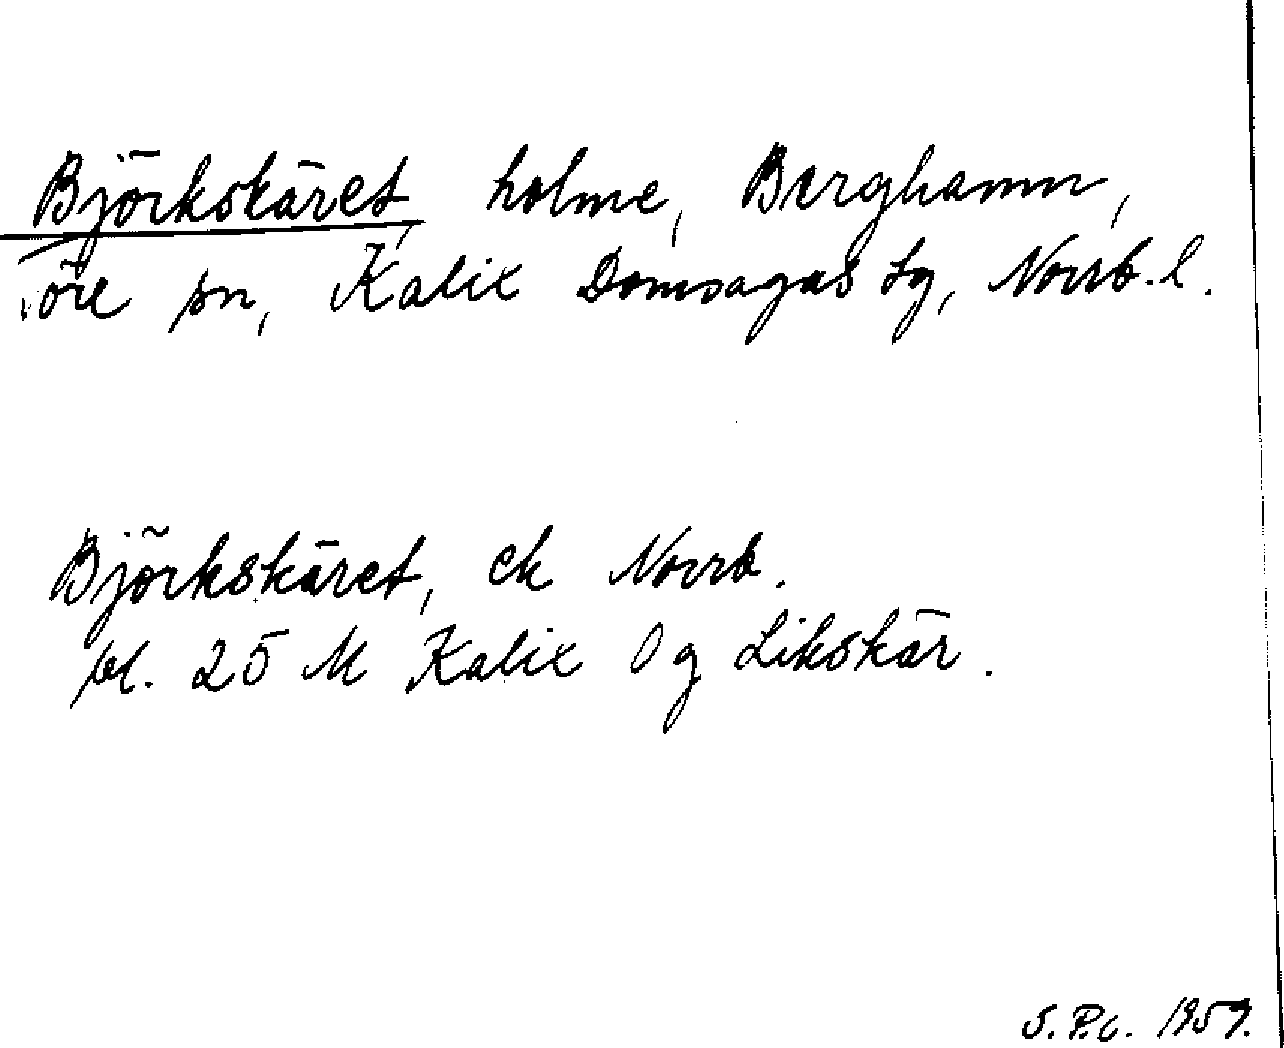 Björkskäret, holme, Berghamn,
Töre sn, Kalix Domsagas tg, Norrb. l.
Björkskäret, ek Norrb.
bl. 25 M Kalix Og Likskär.
S. P.c. 1959.